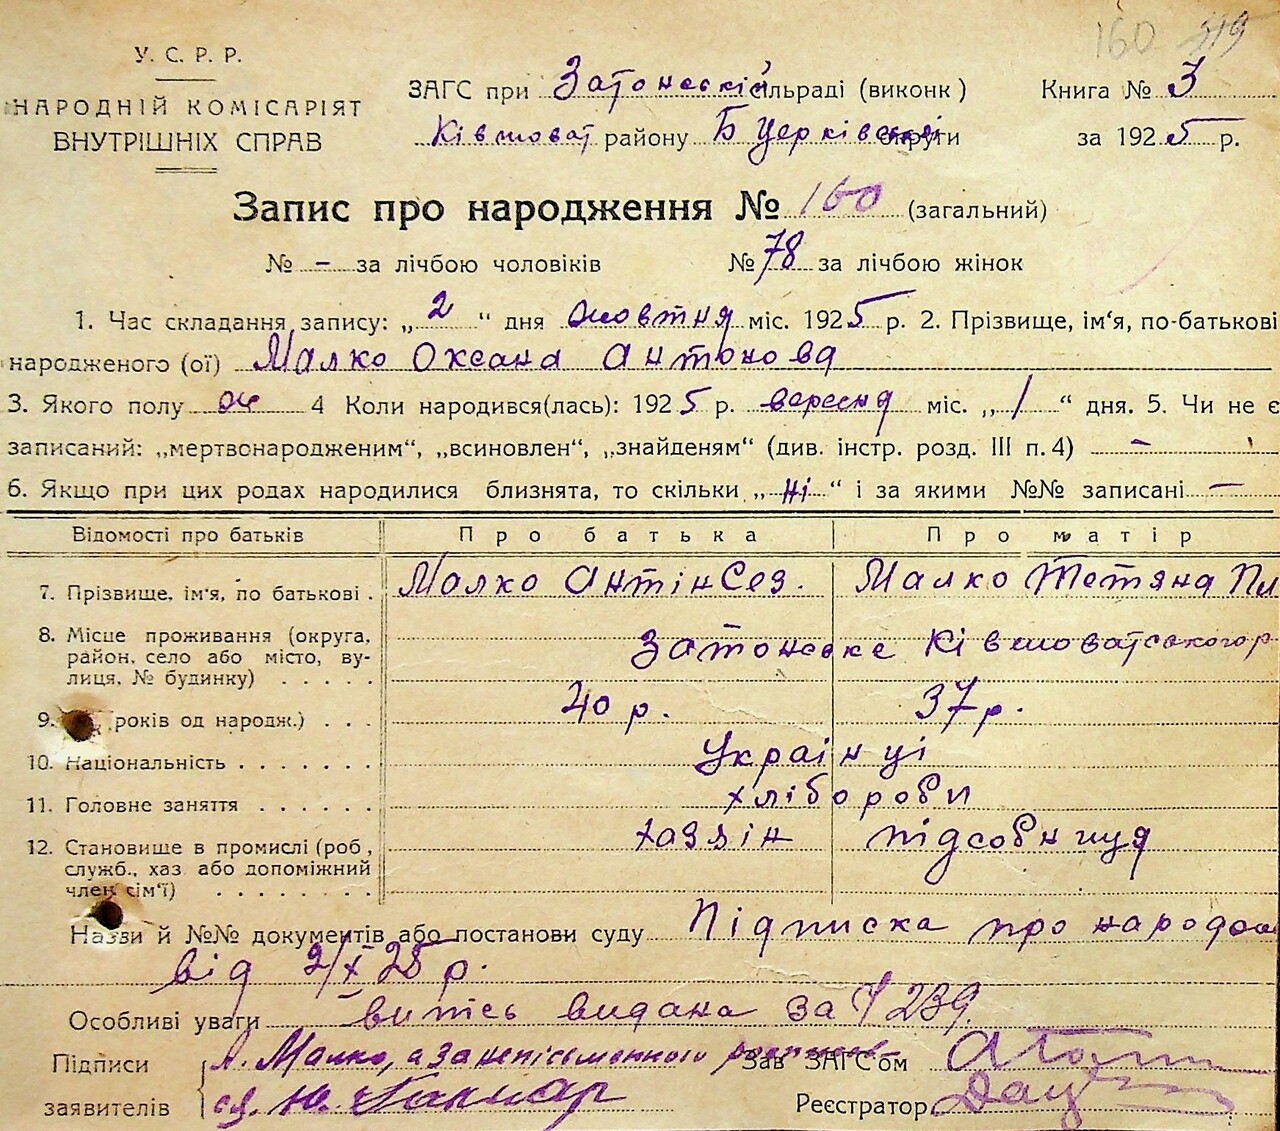 160 319
У. С. Р. Р.
НАРОДНІЙ КОМІСАРІЯТ
ВНУТРІШНІХ СПРАВ
ЗАГС при Затонскій сільраді (виконк) Книга № 3
Ківшоват району Б Церківській округи за 1925 р.
Запис про народження № 160 (загальний)
№ – за лічбою чоловіків № 78 за лічбою жінок
1. Час складання запису: „2“ дня жовтня міс. 1925 р. 2. Прізвище, ім'я, по-батькові
народженого (ої) Малко Оксана Антонова
3. Якого полу ж 4 Коли народився(лась): 1925 р. вересня міс. „1“ дня. 5. Чи не є
записаний: „мертвонародженим“, „всиновлен“, „знайденям“ (див. інстр. розд. III п. 4) –
6. Якщо при цих родах народилися близнята, то скільки „ні“ і за якими №№ записані –
Відомості про батьків Про батька Про матір
7. Прізвище, ім'я, по батькові . Малко Антін Сез. Малко Тетяна Пл
8. Місце проживання (округа, район, село або місто, вулиця, № будинку) . . . . .
Затонске Ківшоватського р
9. років од народж.) . . . 40 р. 37 р.
10. Національність . . . . . . . Українці
11. Головне заняття . . . . . . хлібороби
12. Становище в промислі (роб, хазяін підсобниця
служб., хаз або допоміжний
член сім'ї) . . . . . . . .
Назви й №№ документів або постанови суду Підписка про народж
від 2/X 25 р.
Особливі уваги витісь видана за № 239.
Підписи Малко, а за неписьменного Зав ЗАГС'ом
заявителів Реєстратор